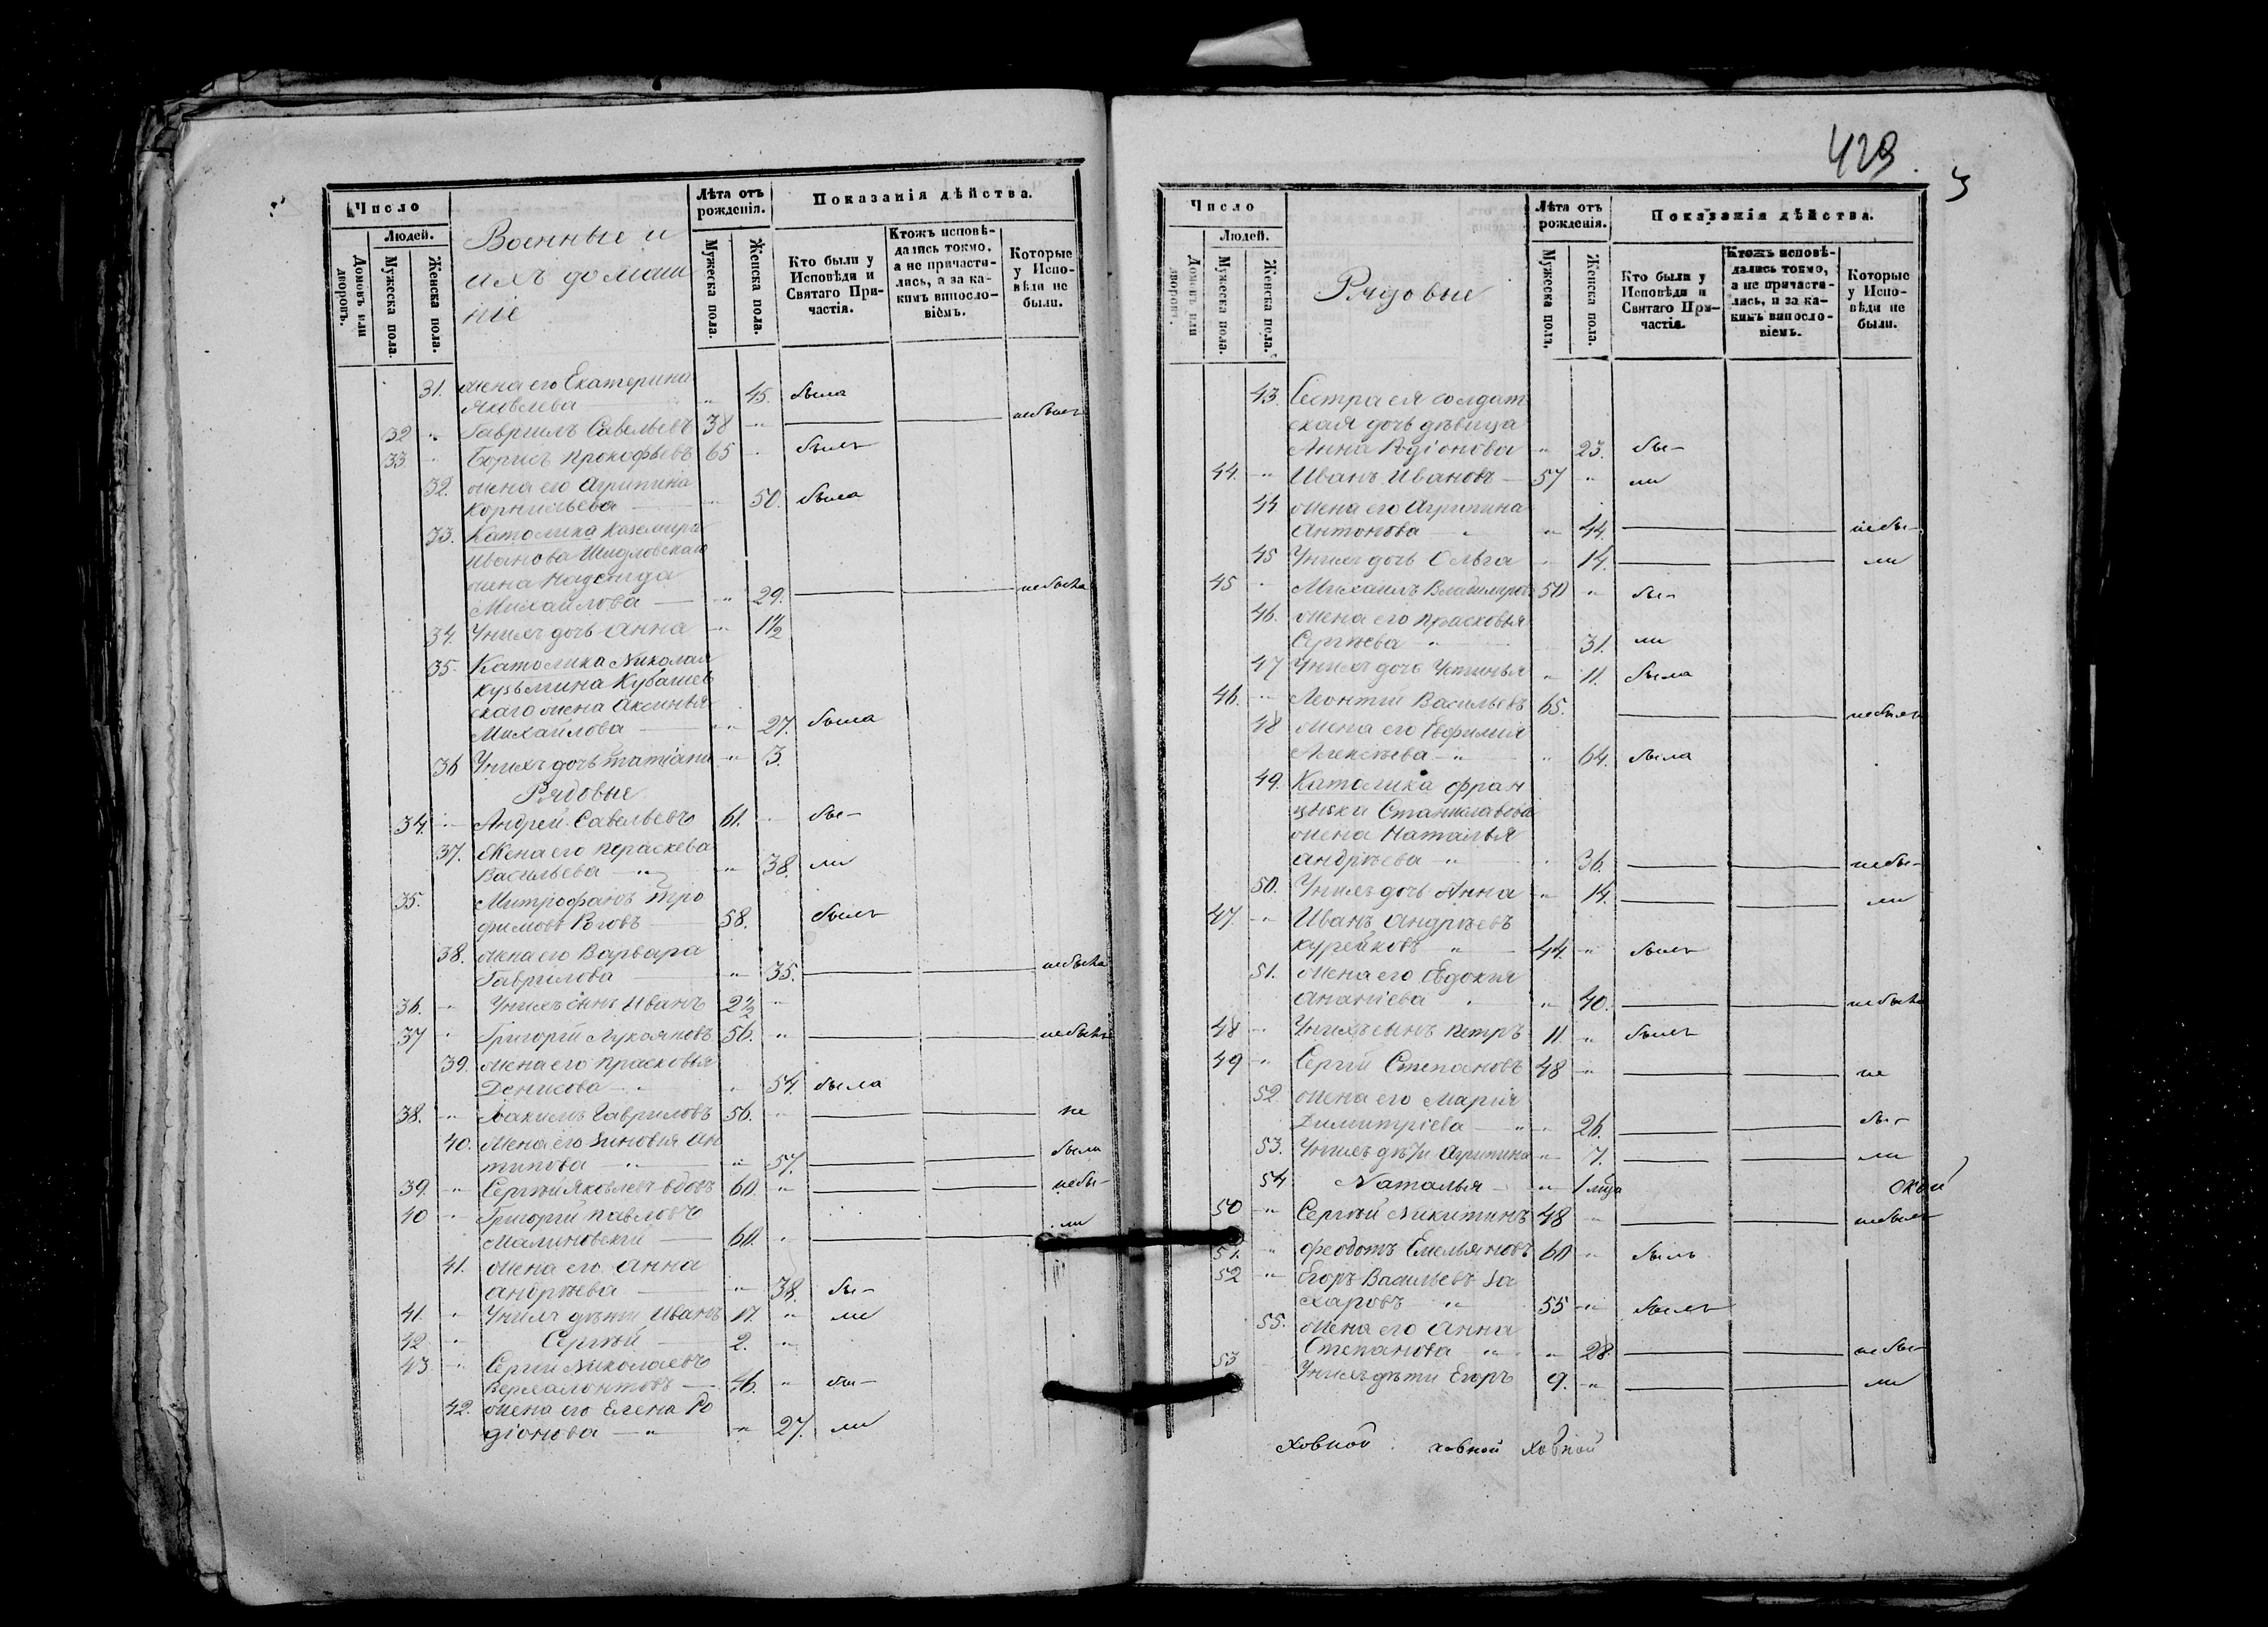 Число
Людей.
Домовъ или дворовъ.
Мужеска пола.
Женска пола.
Военные и
ихъ домаш
ніе
Лѣта отъ рожденія.
Мужеска пола.
Женска пола.
Показанія дѣйства.
Кто были у Исповѣди и Святаго Причастія.
Ктожъ исповѣдались токмо, а не причастились, а за какимъ винословіемъ.
Которые у Исповѣди не были.
31. жена его Екатерина
Яковлева " 45. была
32 " Гавріилъ Савельевъ 38 " небылъ
33. " Борисъ Прокофьевъ 65 " былъ
32. жена его Агрипина
Корнильева " 50. была
33. Католика Каземира
Иванова Шидловскаго
жена Надежда
Михайлова " 29. небыла
34. Унихъ дочь Анна " 1½
35. Католика Николая
Кузьмина Кубашев
скаго жена Аксинья
Михайлова " 27. была
36 Унихъ дочь Татіана " 3.
Рядовые
34. " Андрей Савельевъ 61. " бы-
37. Жена его Параскева
Васильева " 38. ли
35. Митрофанъ Тро
фимовъ Роговъ 58. былъ
38. жена его Варвара
Гаврилова " 35. небыла
36. " Унихъ сынъ Иванъ 2½ "
37 " Григорій Лукьяновъ 56. " небылъ
39. жена его Прасковья
Денисова " 54. была
38. " Іоакимъ Гавриловъ 56. " не
40. жена его Зиновія Ан
типова " 57. были
39. " Сергѣй Яковлевъ вдовъ 60. " небы-
40 " Григорій Павловъ
Малиновскій 60. " ли
41. жена его Анна
Андрѣева " 38. бы-
41. " Унихъ дѣти Иванъ 17. " ли
42 " Сергѣй 2. "
43 " Сергій Николаевъ
46. " бы-
42. жена его Елена Ро
діонова " 27. ли
429
3
Число
Людей.
Домовъ или дворовъ.
Мужеска пола.
Женска пола.
Рядовые
Лѣта отъ рожденія.
Мужеска пола.
Женска пола.
Показанія дѣйства.
Кто были у Исповѣди и Святаго Причастія.
Ктожъ исповѣдались токмо, а не причастились, и за какимъ винословіемъ.
Которые у Исповѣди не были.
43. Сестра ея солдат
ская дочь дѣвица
Анна Родіонова " 23. бы-
44. " Иванъ Ивановъ 57 " ли
44 жена его Агрипина
Антонова " 44. небы-
45 Унихъ дочь Ольга " 14. ли
45 " Михаилъ Владиміровъ 50 " бы-
46. жена его Прасковья
Сергѣева " 31. ли
47 Унихъ дочь Устинья " 11. была
46. " Леонтій Васильевъ 65. небылъ
48 жена его Евфимія
Алексѣева " 64. была
49. Католика Фран
цыска Станиславова
жена Наталья
Андрѣева " 36. небы-
50. Унихъ дочь Анна " 14. ли
47. " Иванъ Андрѣевъ
Курейковъ " 44. " былъ
51. жена его Евдокія
Ананіева " 40. небыла
48 " Унихъ сынъ Петръ 11. " былъ
49 " Сергій Степановъ 48 " не
52. жена его Марія
Димитріева " 26. бы-
53. Унихъ дѣти Агрипина " 7. ли
54 Наталья " 1 мца
50 " Сергѣй Никитинъ 48 " небылъ
51. " Феодотъ Емельяновъ 60 " былъ
52 " Егоръ Васильевъ За
харовъ " 55 " былъ
55. жена его Анна
Степанова " 28. небы-
53 Унихъ дѣти Егоръ 9. " ли
ховной ховной ховной